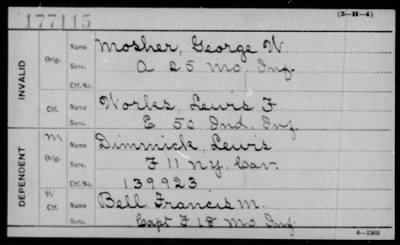 177115
(3-H-4)
INVALID
Orig.
Name Mosher, George W
Serv. A 25 Mo, Inf.
Ctf. No.
Ctf.
Name Works, Lewis F
Serv. E 50 Ind. Inf
DEPENDENT
M
Orig.
Name Dimmick, Lewis
Serv. F 11 N.Y. Cav.
Ctf. No. 139923
W
Ctf.
Name Bell, Francis M.
Serv. Capt F 18 Mo Inf